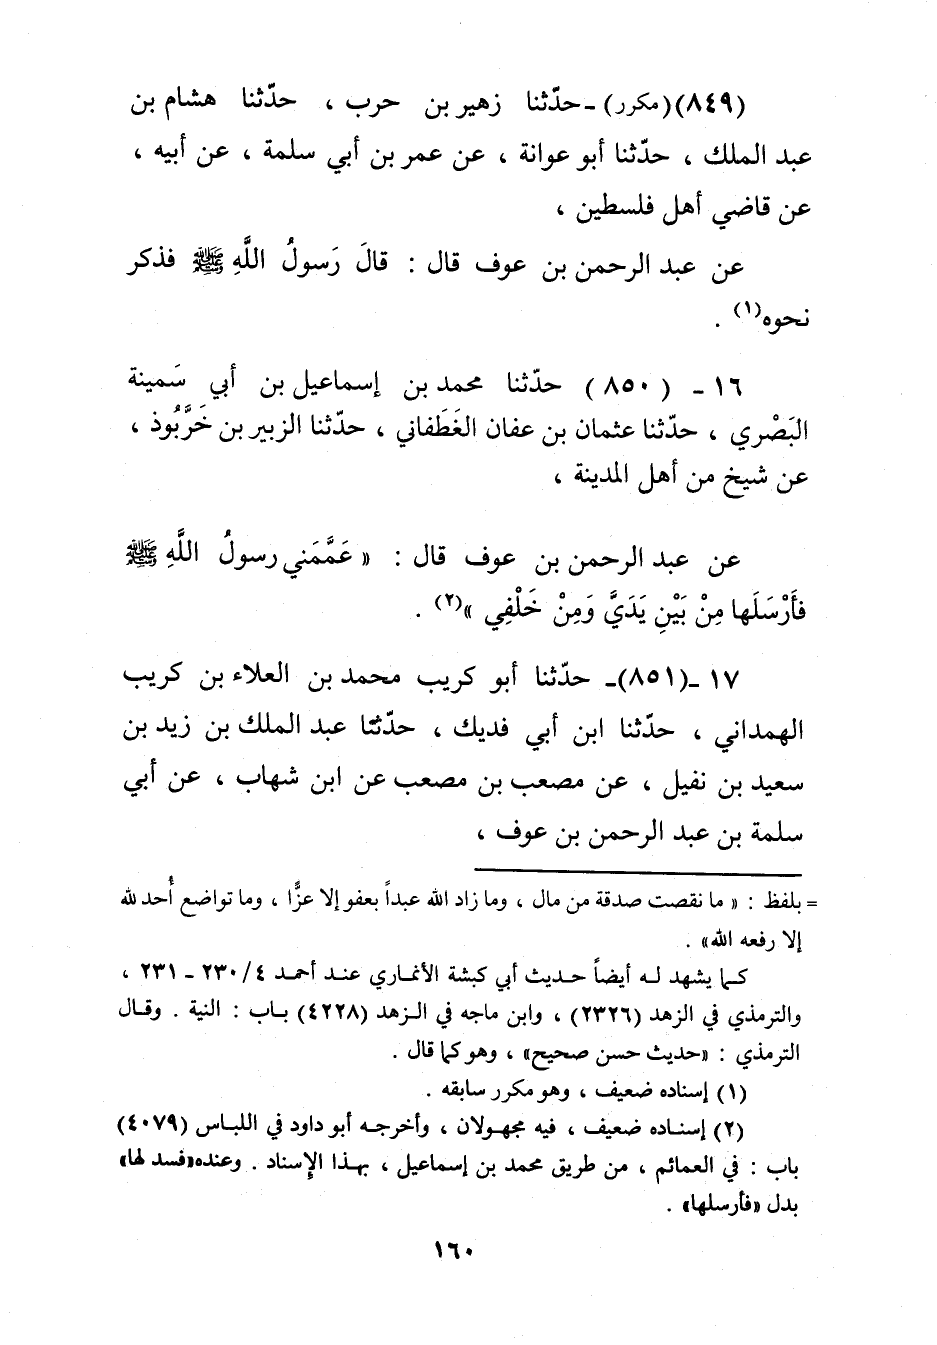 (٨٤٩)(مكرر) ـ حدّثنا زهير بن حرب ، حدّثنا هشام بن
عبد الملك ، حدّثنا أبو عوانة ، عن عمر بن أبي سلمة ، عن أبيه ،
عن قاضي أهل فلسطين ،
عن عبد الرحمن بن عوف قال : قالَ رَسولُ اللَّهِ ﷺ فذكر
نحوه(١) .
١٦ ـ (٨٥٠) حدّثنا محمد بن إسماعيل بن أبي سَمينة
البَصْري ، حدّثنا عثمان بن عفان الغَطَفاني ، حدّثنا الزبير بن خَرَّبُوذ ،
عن شيخ من أهل المدينة ،
عن عبد الرحمن بن عوف قال : « عَمَّمَني رسولُ اللَّهِ ﷺ
فأَرْسَلَها مِنْ بَيْنِ يَدَيَّ وَمِنْ خَلْفِي »(٢) .
١٧ ـ(٨٥١)ـ حدّثنا أبو كريب محمد بن العلاء بن كريب
الهمداني ، حدّثنا ابن أبي فديك ، حدّثنا عبد الملك بن زيد بن
سعيد بن نفيل ، عن مصعب بن مصعب عن ابن شهاب ، عن أبي
سلمة بن عبد الرحمن بن عوف ،
= بلفظ : « ما نقصت صدقة من مال ، وما زاد الله عبداً بعفو إلا عزًّا ، وما تواضع أحد لله
إلا رفعه الله» .
كما يشهد له أيضاً حديث أبي كبشة الأنماري عند أحمد ٢٣٠/٤ ـ ٢٣١ ،
والترمذي في الزهد (٢٣٢٦) ، وابن ماجه في الزهد (٤٢٢٨) باب : النية . وقال
الترمذي : «حديث حسن صحيح» ، وهو كما قال .
(١) إسناده ضعيف ، وهو مكرر سابقه .
(٢) إسناده ضعيف ، فيه مجهولان ، وأخرجه أبو داود في اللباس (٤٠٧٩)
باب : في العمائم ، من طريق محمد بن إسماعيل ، بهذا الإسناد . وعنده«فسد لها»
بدل «فأرسلها» .
١٦٠